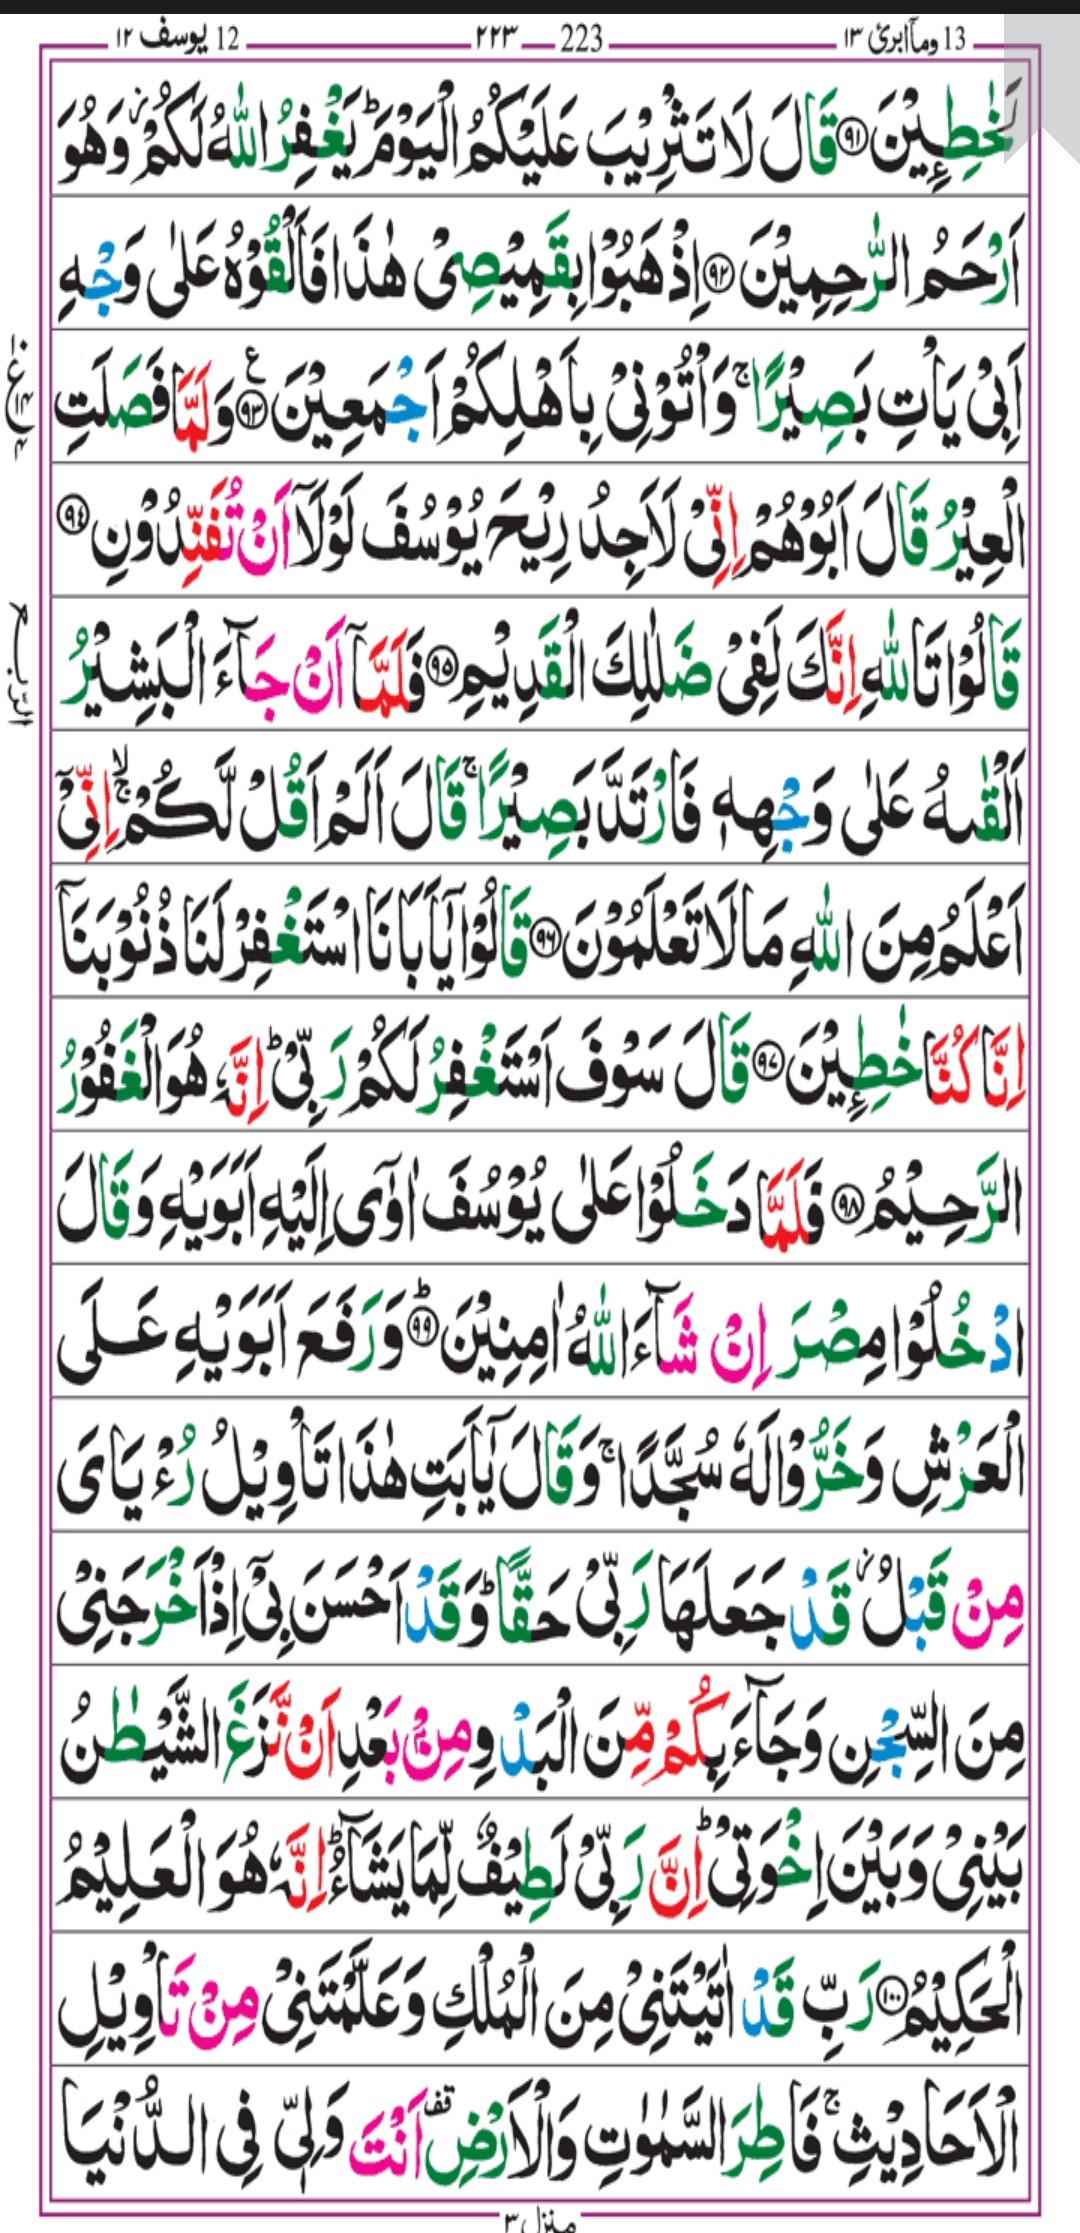 13 ومآابرئ ۱۳ 223 ۲۲۳ 12 یوسف ۱۲
لَخٰطِـِٕیْنَ ﴿۹۱﴾ قَالَ لَا تَثْرِیْبَ عَلَیْكُمُ الْیَوْمَ ؕ یَغْفِرُ اللّٰهُ لَكُمْ ؗ وَهُوَ
اَرْحَمُ الرّٰحِمِیْنَ ﴿۹۲﴾ اِذْهَبُوْا بِقَمِیْصِیْ هٰذَا فَاَلْقُوْهُ عَلٰی وَجْهِ
اَبِیْ یَاْتِ بَصِیْرًا ۚ وَاْتُوْنِیْ بِاَهْلِكُمْ اَجْمَعِیْنَ ﴿۹۳﴾ ع وَلَمَّا فَصَلَتِ
ع ۱۰ ۱۴ ۴
الْعِیْرُ قَالَ اَبُوْهُمْ اِنِّیْ لَاَجِدُ رِیْحَ یُوْسُفَ لَوْلَاۤ اَنْ تُفَنِّدُوْنِ ﴿۹۴﴾
الربع
قَالُوْا تَاللّٰهِ اِنَّكَ لَفِیْ ضَلٰلِكَ الْقَدِیْمِ ﴿۹۵﴾ فَلَمَّاۤ اَنْ جَآءَ الْبَشِیْرُ
اَلْقٰىهُ عَلٰی وَجْهِهٖ فَارْتَدَّ بَصِیْرًا ۚ قَالَ اَلَمْ اَقُلْ لَّكُمْ ۚۙ اِنِّیْۤ
اَعْلَمُ مِنَ اللّٰهِ مَا لَا تَعْلَمُوْنَ ﴿۹۶﴾ قَالُوْا یٰۤاَبَانَا اسْتَغْفِرْ لَنَا ذُنُوْبَنَاۤ
اِنَّا كُنَّا خٰطِـِٕیْنَ ﴿۹۷﴾ قَالَ سَوْفَ اَسْتَغْفِرُ لَكُمْ رَبِّیْ ؕ اِنَّهٗ هُوَ الْغَفُوْرُ
الرَّحِیْمُ ﴿۹۸﴾ فَلَمَّا دَخَلُوْا عَلٰی یُوْسُفَ اٰوٰۤی اِلَیْهِ اَبَوَیْهِ وَقَالَ
ادْخُلُوْا مِصْرَ اِنْ شَآءَ اللّٰهُ اٰمِنِیْنَ ﴿۹۹﴾ ؕ وَرَفَعَ اَبَوَیْهِ عَلَی
الْعَرْشِ وَخَرُّوْا لَهٗ سُجَّدًا ۚ وَقَالَ یٰۤاَبَتِ هٰذَا تَاْوِیْلُ رُءْیَایَ
مِنْ قَبْلُ ؗ قَدْ جَعَلَهَا رَبِّیْ حَقًّا ؕ وَقَدْ اَحْسَنَ بِیْۤ اِذْ اَخْرَجَنِیْ
مِنَ السِّجْنِ وَجَآءَ بِكُمْ مِّنَ الْبَدْوِ مِنْۢ بَعْدِ اَنْ نَّزَغَ الشَّیْطٰنُ
بَیْنِیْ وَبَیْنَ اِخْوَتِیْ ؕ اِنَّ رَبِّیْ لَطِیْفٌ لِّمَا یَشَآءُ ؕ اِنَّهٗ هُوَ الْعَلِیْمُ
الْحَكِیْمُ ﴿۱۰۰﴾ رَبِّ قَدْ اٰتَیْتَنِیْ مِنَ الْمُلْكِ وَعَلَّمْتَنِیْ مِنْ تَاْوِیْلِ
الْاَحَادِیْثِ ۚ فَاطِرَ السَّمٰوٰتِ وَالْاَرْضِ قف اَنْتَ وَلِیّٖ فِی الدُّنْیَا
منزل ۳